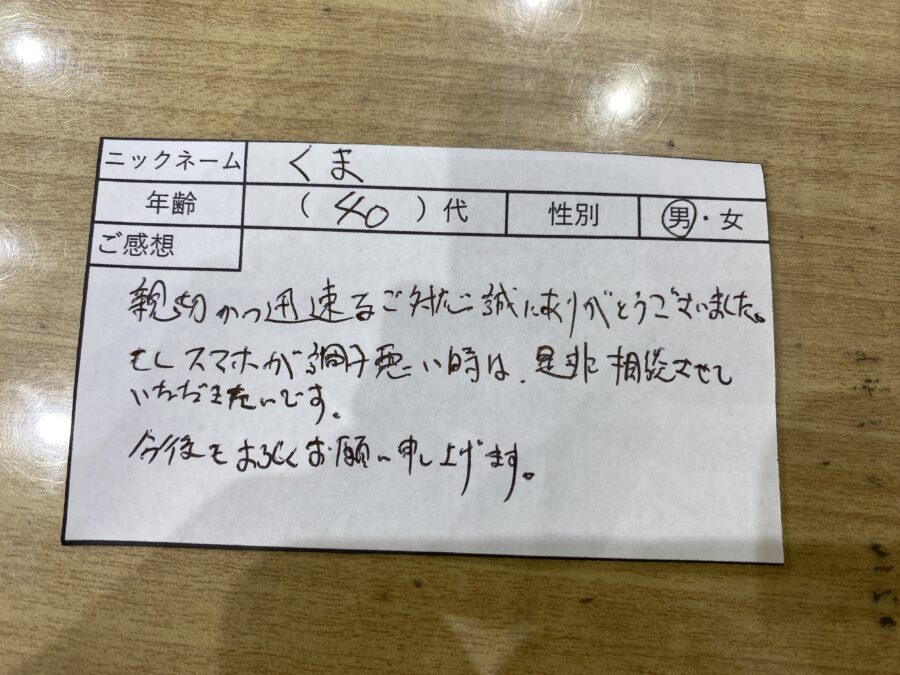 ニックネーム くま
年齢 ( 40 ) 代 性別 男・女
ご感想
親切かつ迅速なご対応誠にありがとうございました。
もしスマホが調子悪い時は、是非相談させて
いただきたいです。
今後もよろしくお願い申し上げます。